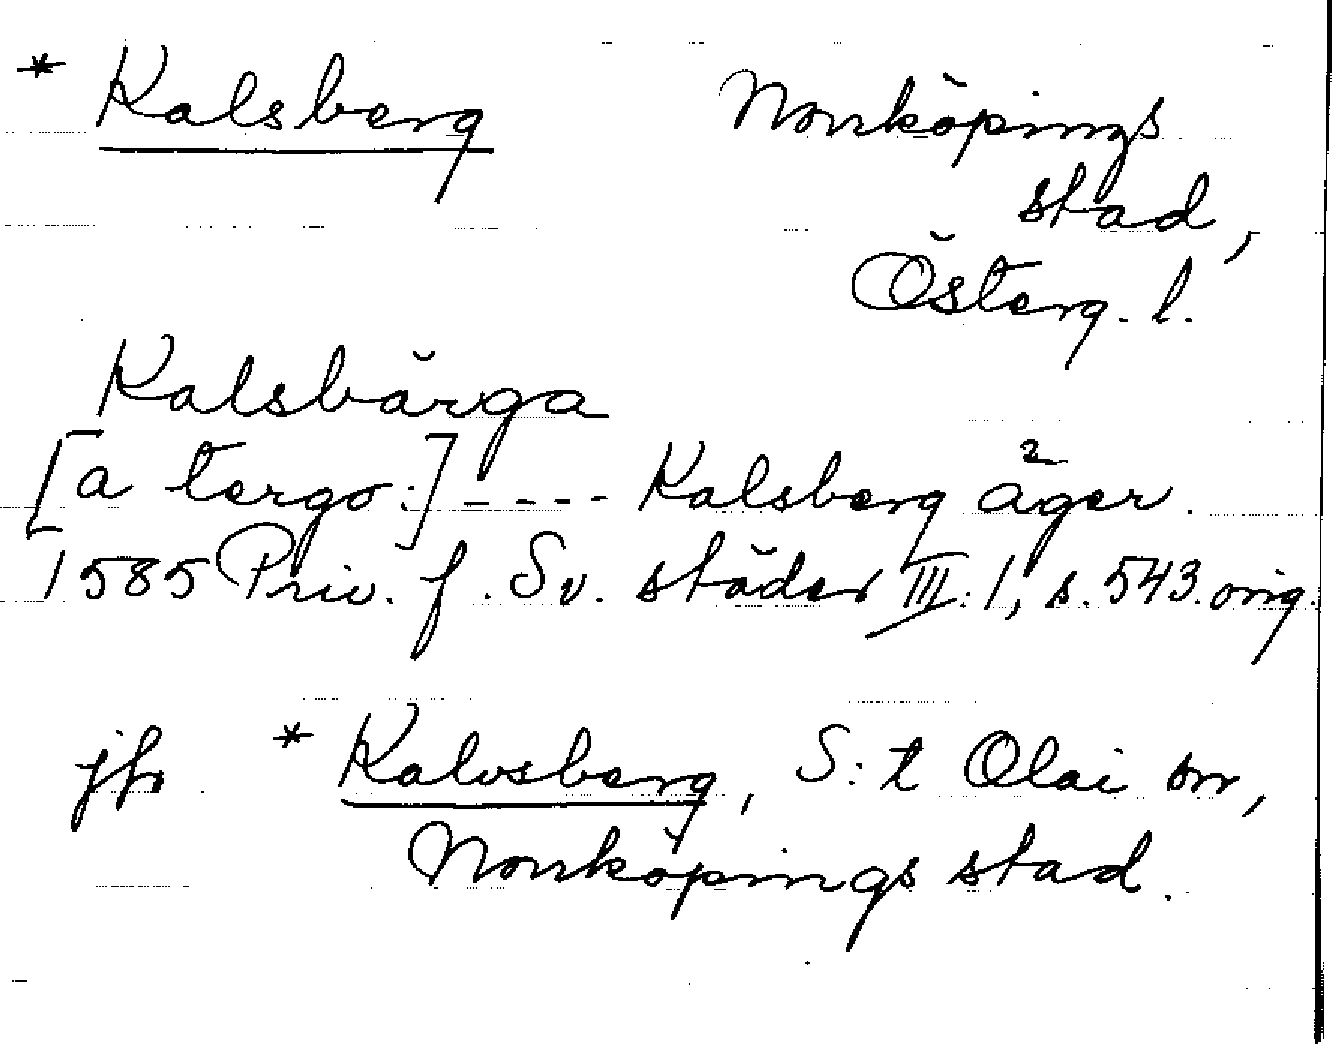 * Kalsberg Norrköpings
stad,
Österg. l.
Kalsbärga
[a tergo:] ---- Kalsberg äger.
1585 Priv. f. Sv. städer III:1, s. 543. orig.
jfr * Kalvsberg, S:t Olai sn,
Norrköpings stad.